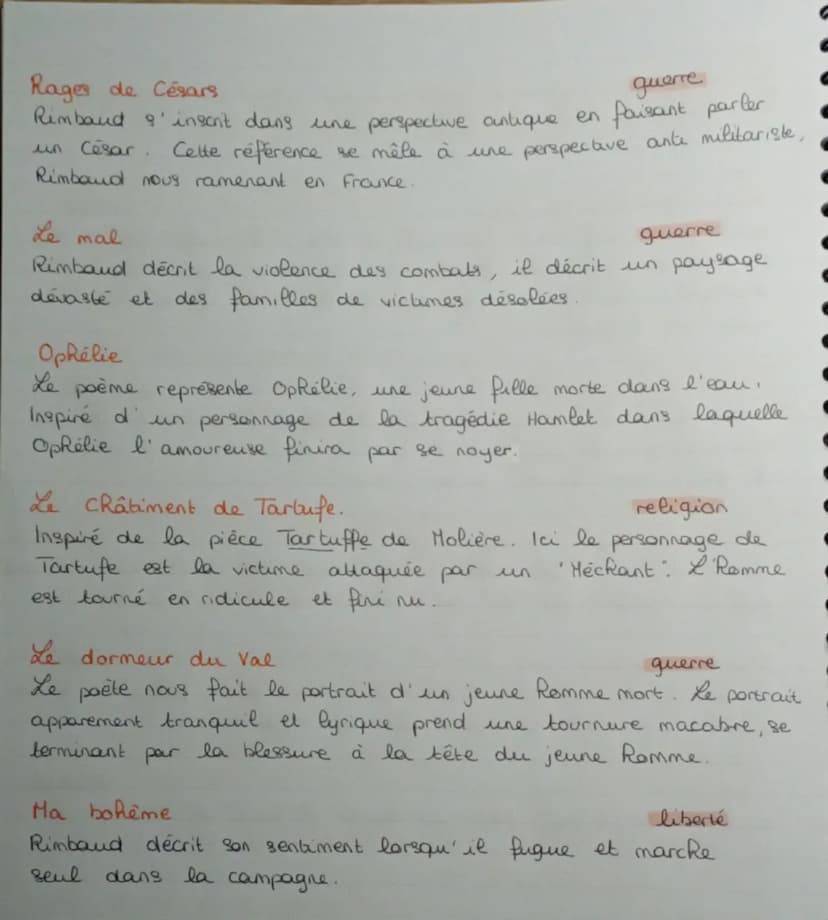 Rages de Césars guerre
Rimbaud s'inscrit dans une perspective antique en faisant parler
un César. Cette référence se mêle à une perspective anti militariste,
Rimbaud nous ramenant en France.
Le mal guerre
Rimbaud décrit la violence des combats, il décrit un paysage
dévasté et des familles de victimes désolées.
Ophélie
Le poème représente Ophélie, une jeune fille morte dans l'eau.
Inspiré d'un personnage de la tragédie Hamlet dans laquelle
Ophélie l'amoureuse finira par se noyer.
Le Châtiment de Tartufe. religion
Inspiré de la pièce Tartuffe de Molière. Ici le personnage de
Tartufe est la victime attaquée par un "Méchant". L'Homme
est tourné en ridicule et fini nu.
Le dormeur du Val guerre
Le poète nous fait le portrait d'un jeune homme mort. Le portrait
apparement tranquil et lyrique prend une tournure macabre, se
terminant par la blessure à la tête du jeune homme.
Ma bohème liberté
Rimbaud décrit son sentiment lorsqu'il fugue et marche
seul dans la campagne.